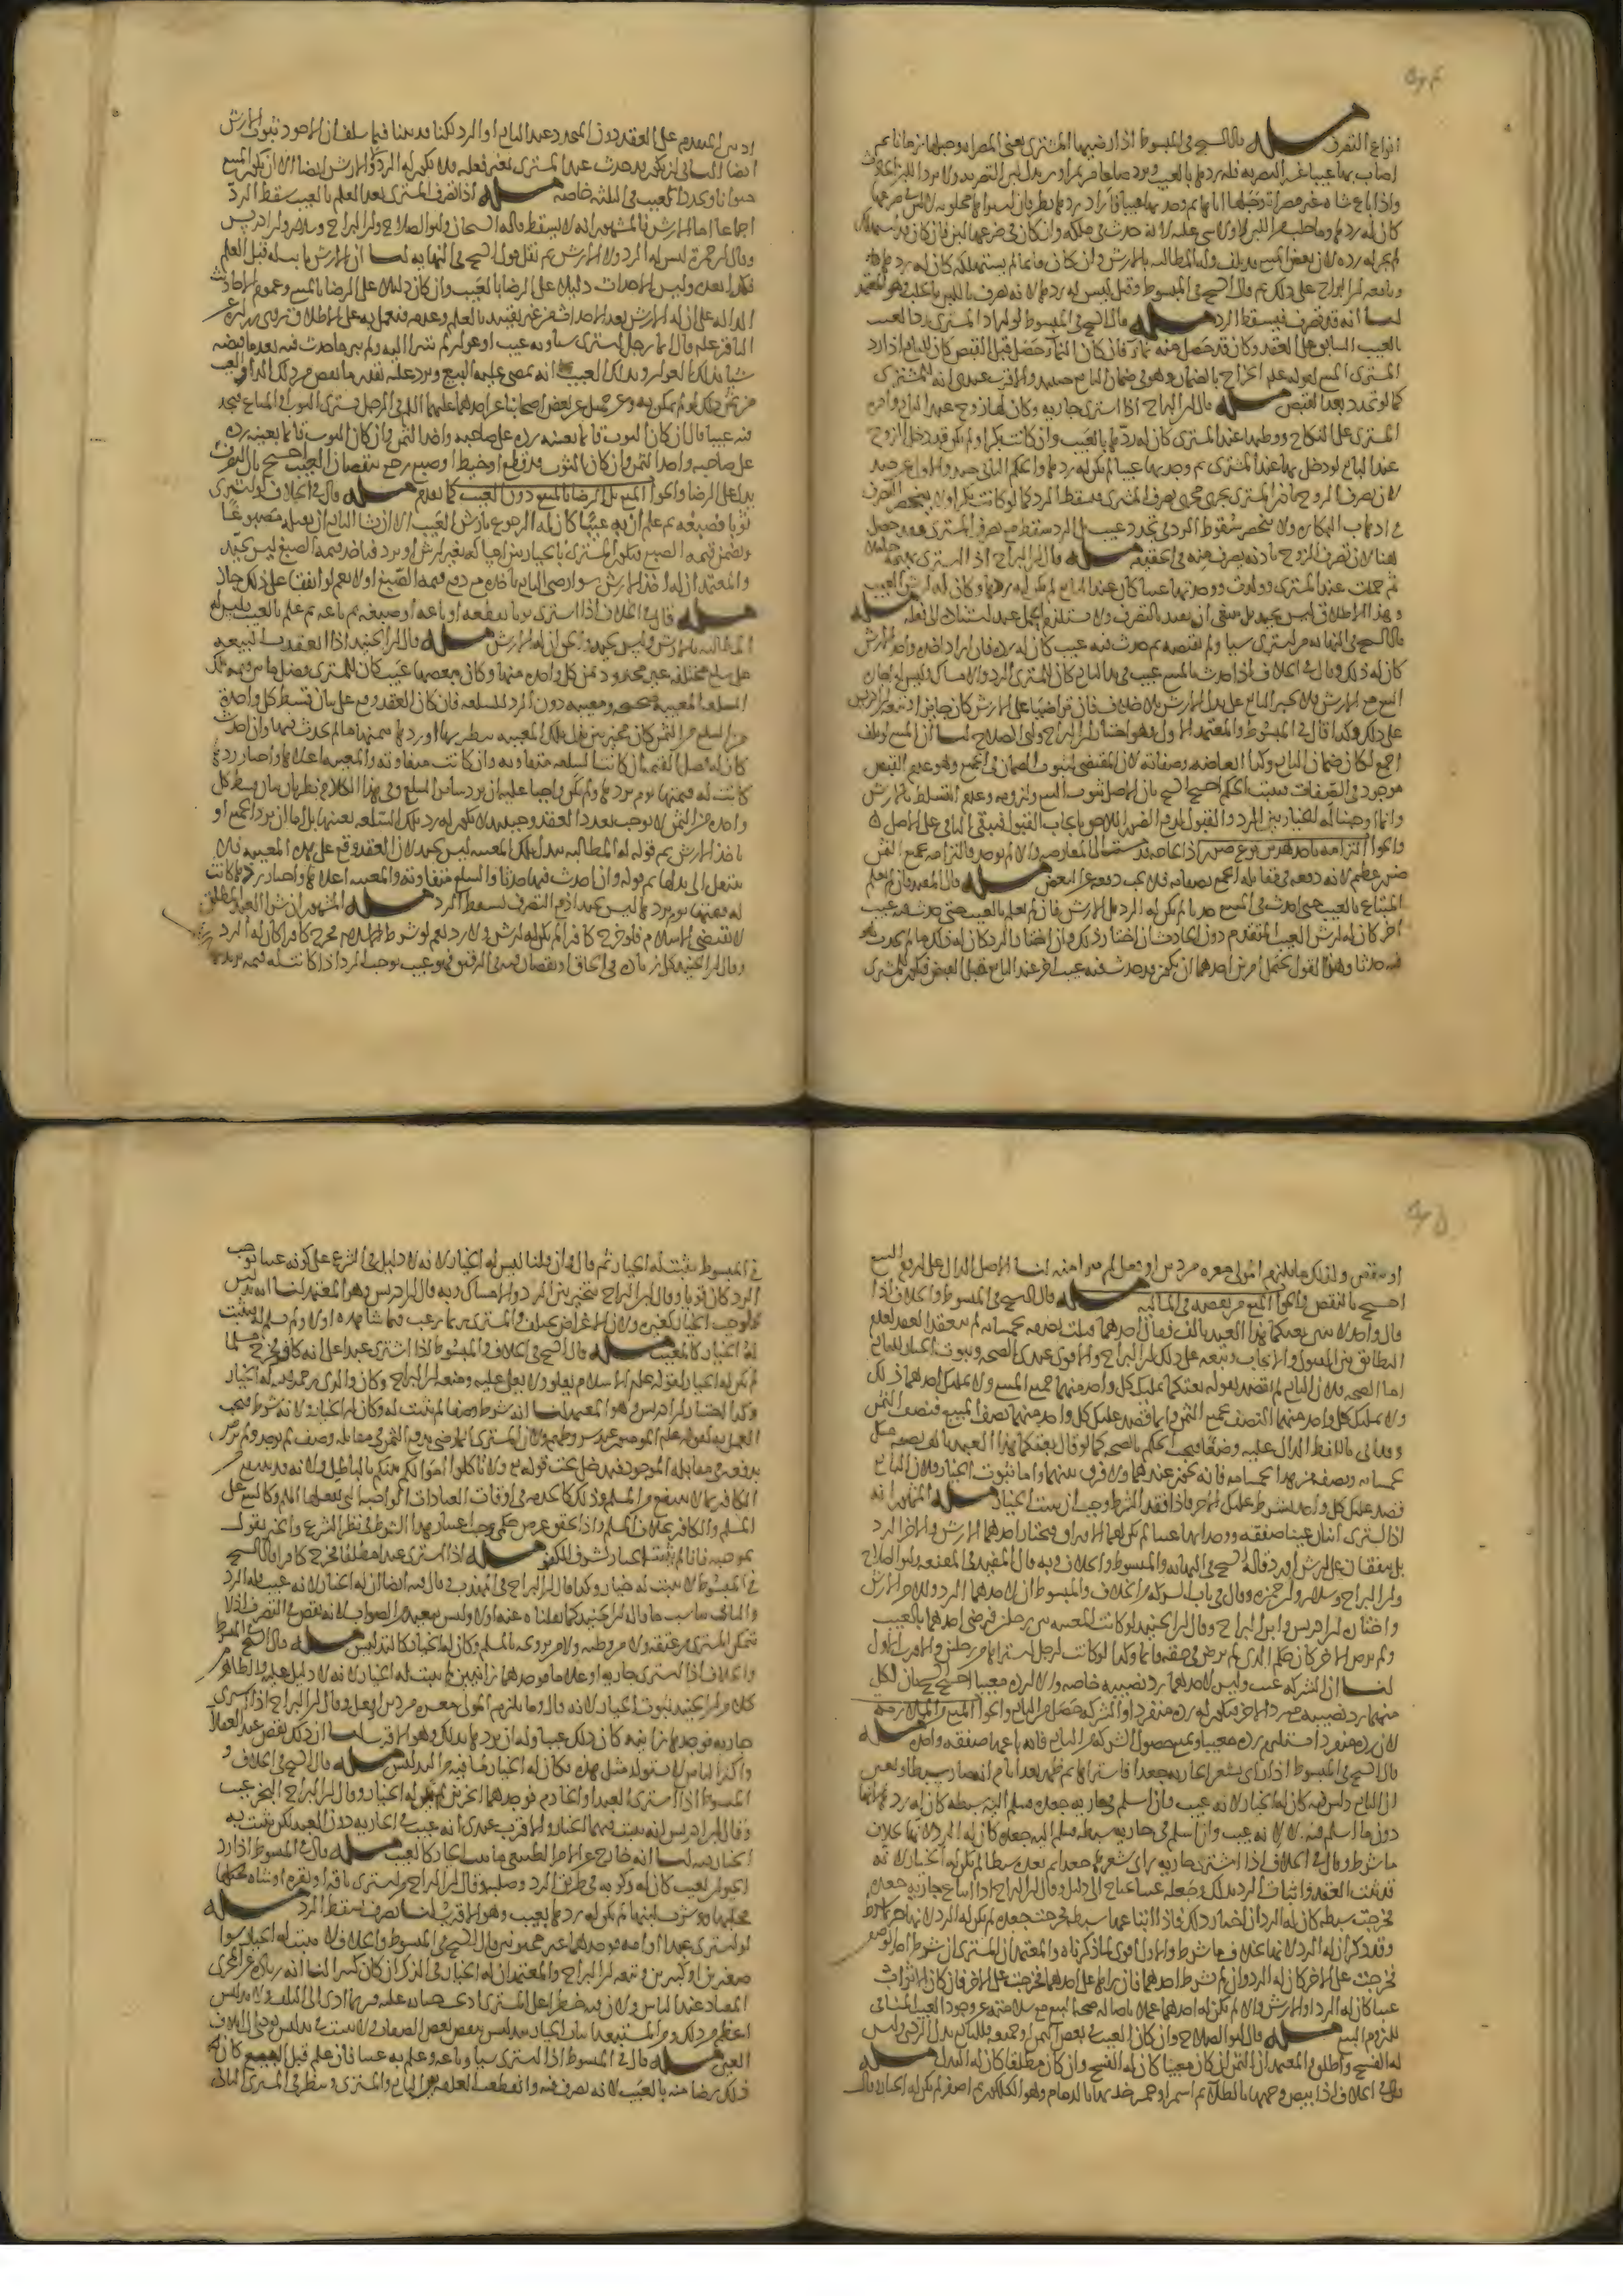 انواع التصرف مسألة قال الشيخ في المبسوط اذا رضيها المشتري يعني المصراة وحلبها زمانا ثم
اصاب بها عيبا غير التصرية فله ردها بالعيب ويرد صاعا من تمر او بر بدل لبن التصرية ولا يرد اللبن الحادث
واذا باع شاة غير مصراة وحلبها اياما ثم وجد بها عيبا فاراد ردها نظر فان اشتراها محلوبة لا لبن في ضرعها
كان له ردها وما حلب من اللبن لا شيء عليه لانه حدث في ملكه وان كان في ضرعها لبن فان كان قد استهلك
لم يجز له رده لان بعض المبيع قد تلف وله المطالبة بالارش وان كان قائما لم يستهلكه كان له ردها
وتابعه ابن البراج على ذلك ثم قال الشيخ في المبسوط وقيل ليس له ردها لانه تصرف باللبن بالحلب وهو المعتمد
لنا انه قد تصرف فيسقط الرد مسألة قال الشيخ في المبسوط لو اراد المشتري رد العبد
بالعيب السابق على العقد وكان قد حصل منه نماء فان كان النماء حصل قبل القبض كان للبايع اذا رد
المشتري المبيع لقوله عليه الخراج بالضمان وهو في ضمان البايع حينئذ والاقرب عندي انه للمشتري
كما لو تجدد بعد القبض مسألة قال ابن البراج اذا اشترى جارية وكان لها زوج عند البايع واقره
المشتري على النكاح ووطئها عند المشتري كان له ردها بالعيب وان كانت بكرا ولم يكن قد دخل الزوج
عند البايع ثم دخل بها عند المشتري ثم وجد بها عيبا لم يكن له ردها والحكم الثاني جيد والاول غير جيد
لان تصرف الزوج باذن المشتري يجري مجرى تصرف المشتري فيسقط الرد كما لو كانت بكرا ولا ينحصر التصرف
في اذهاب البكارة ولا ينحصر سقوط الرد في تجدد عيب بل الرد سقط مع تصرف المشتري وهو حاصل
هنا لان تصرف الزوج باذنه تصرف منه في الحقيقة مسألة قال ابن البراج اذا اشترى بهيمة حاملة
ثم حملت عند المشتري وولدت ووجد بها عيبا كان عند البايع لم يكن له ردها وكان له ارش العيب
وهذا الاطلاق ليس بجيد بل ينبغي ان يقيد بالتصرف ولا يستلزم الحمل عند استناد الى فعله مسألة
قال الشيخ في النهاية من اشترى شيئا ولم يقبضه ثم حدث فيه عيب كان له رده فان اراد اخذه واخذ الارش
كان له ذلك وقال في الخلاف اذا حدث بالمبيع عيب في يد البايع كان للمشتري الرد والامساك وليس له اجازة
البيع مع الارش ولا يجبر البايع على بذل الارش بلا خلاف فان تراضيا على الارش كان جايزا وتبعه ابن ادريس
على ذلك وكذا قال في المبسوط والمعتمد الاول وهو اختيار ابن البراج وابي الصلاح لنا ان المبيع لو تلف
اجمع لكان من ضمان البايع وكذا ابعاضه وصفاته لان المقتضي لثبوت الضمان في الجميع وهو عدم القبض
موجود في الصفات فيثبت الحكم احتج الشيخ بان الاصل ثبوت البيع ولزومه وعدم التسلط بالارش
وانما اوجبنا له الخيار بين الرد والقبول لدفع الضرر اللاحق بايجاب القبول فيبقى الباقي على الاصل
والجواب
ضرر عظيم لانه دفعه في مقابلة الجميع بصفاته فلا يجب دفعه عن البعض مسألة قال المفيد فان لم يعلم
المبتاع بالعيب حتى حدث في المبيع حدثا لم يكن له الرد بل الارش فان لم يعلم بالعيب حتى حدث فيه عيب
اخر كان له ارش العيب المتقدم دون الحادث ان اختار ذلك وان اختار الرد كان له ذلك ما لم يحدث هو
فيه حدثا وهذا القول يحتمل امرين احدهما ان يكون قد حدث فيه عيب اخر عند البايع قبل القبض فيكون للمشتري
ارش المتقدم على العقد دون المتجدد عند البايع او الرد لكنا قد بينا فيما سلف ان الاجود ثبوت الارش
ايضا الثاني ان يكون قد حدث عند المشتري بغير فعله فلا يكون له الرد والارش ايضا الا ان يكون المبيع
حيوانا ويحدث العيب في الثلثة خاصة مسألة اذا تصرف المشتري بعد العلم بالعيب سقط الرد
اجماعا اما الارش فالمشهور انه لا يسقط قاله الشيخان وابو الصلاح وابن البراج وسلار وابن ادريس
وقال ابن حمزة ليس له الرد ولا الارش ثم نقل قول الشيخ في النهاية لنا ان الارش ثابت له قبل العلم
فكذا بعده وليس الاحداث دليلا على الرضا بالعيب وان كان دليلا على الرضا بالمبيع وعموم الاحاديث
الدالة على ان له الارش بعد الاحداث من غير تقييد بالعلم وعدمه فيعمل به على الاطلاق فروى زرارة عن
الباقر عليه قال ايما رجل اشترى شيئا وبه عيب او عوار لم يتبرأ اليه ولم يبين له فاحدث فيه بعد ما قبضه
شيئا ثم علم بذلك العوار وبذلك العيب انه يمضي عليه البيع ويرد عليه بقدر ما ينقص من ذلك الداء والعيب
من ثمن ذلك لو لم يكن به وعن جميل عن بعض اصحابنا عن احدهما عليهما السلام في الرجل يشتري الثوب او المتاع فيجد
فيه عيبا قال ان كان الثوب قائما بعينه رده على صاحبه واخذ الثمن وان كان الثوب قائما بعينه رده
على صاحبه واخذ الثمن وان كان الثوب قد قطع او خيط او صبغ رجع بنقصان العيب احتج بان التصرف
يدل على الرضا والجواب المنع بل الرضا بالمبيع دون العيب كما تقدم مسألة قال في الخلاف لو اشترى
ثوبا فصبغه ثم علم ان به عيبا كان له الرجوع بارش العيب الا ان يشاء البايع ان يقبله مصبوغا
ويضمن قيمة الصبغ فيكون المشتري بالخيار بين امساكه بغير ارش او يرد فياخذ قيمة الصبغ ليس بجيد
والمعتمد ان له اخذ الارش سواء رضي البايع باخذه مع دفع قيمة الصبغ او لا نعم لو اتفقا على ذلك جاز
مسألة قال في الخلاف اذا اشترى ثوبا فقطعه او باعه او صبغه ثم باعه ثم علم بالعيب ليس له
المطالبة بالارش وليس بجيد والحق ان له الارش مسألة قال ابن الجنيد اذا انعقد البيع
على سلع مختلفة غير محدود ثمن كل واحدة منها وكان ببعضها عيب كان للمشتري فضل ما بين قيمة تلك
السلعة المعيبة صحيحة ومعيبة دون الرد للسلعة فان كان العقد وقع على بيان قسط كل واحدة
من السلع من الثمن كان مخيرا بين تلك المعيبة بنظيرها او ردها بثمنها ما لم يحدث فيها وان احدث
كان له فضل القيمة ان كانت السلعة متقاربة وان كانت متفاوتة والمعيبة اعلاها واختار ردها
كانت له قيمتها يوم يردها ولم يكن واجبا عليه ان يرد سائر السلع وفي هذا الكلام نظر فان بيان قسط كل
واحدة من الثمن لا يوجب تعدد العقد وحينئذ لا يكون له رد تلك السلعة بعينها بل اما ان يرد الجميع او
ياخذ الارش ثم قوله له المطالبة ببدل تلك المعيبة ليس بجيد لان العقد وقع على هذه المعيبة فلا
ينتقل الى بدلها ثم قوله وان احدث فيها حدثا والسلع متفاوتة والمعيبة اعلاها واختار ردها كانت
له قيمتها يوم يردها ليس بجيد اذ مع التصرف يسقط الرد مسألة المشهور ان شراء العبد المطلق
لا يقتضي الاسلام فلو خرج كافرا لم يكن له ارش ولا رد نعم لو شرط الاسلام فخرج كافرا كان له الرد
وقال ابن الجنيد كل زيادة في الخلق او نقصان فيه في الرقيق فهو عيب يوجب الرد اذا كانت له قيمة يزيد
او ينقص وكذلك ما يلتزم المولى جعره من دين او فعل لم يبر منه لنا الاصل الدال على لزوم البيع
احتج بالنقص والجواب المنع من نقصه في المالية مسألة قال الشيخ في المبسوط والخلاف اذا
قال واحد لاثنين بعتكما هذا العبد بالف فقال احدهما قبلت نصفه بخمسمائة لم ينعقد العقد لعدم
التطابق بين القبول والايجاب وتبعه على ذلك ابن البراج والاقوى عندي الصحة وثبوت الخيار للبايع
اما الصحة فلان البايع لم يقصد بقوله بعتكما تمليك كل واحد منهما جميع المبيع ولا تمليك احدهما ذلك
ولا تمليك كل واحد منهما النصف بجميع الثمن وانما قصد تمليك كل واحد منهما نصف المبيع بنصف الثمن
وقد اتى باللفظ الدال عليه وضعا فيجب الحكم بالصحة كما لو قال بعتكما هذا العبد بالف نصفه منك
بخمسمائة ونصفه من هذا بخمسمائة فانه يجوز عندهما ولا فرق بينهما واما ثبوت الخيار فلان البايع
قصد تمليك كل واحد بشرط تمليك الاخر فاذا فقد الشرط وجب ان يثبت الخيار مسألة المشهور انه
اذا اشترى اثنان عينا صفقة ووجدا بها عيبا لم يكن لهما الافتراق فيختار احدهما الارش والاخر الرد
بل يتفقان على ارش او رد قاله الشيخ في النهاية والمبسوط والخلاف وبه قال المفيد في المقنعة وابو الصلاح
وابن البراج وسلار وابن حمزة وقال في باب الشركة من الخلاف والمبسوط ان لاحدهما الرد وللاخر الارش
واختاره ابن ادريس وابن البراج وقال ابن الجنيد لو كانت المعيبة بين رجلين فرضي احدهما بالعيب
ولم يرض الاخر كان حكم الذي لم يرض في حقه قائما وكذا لو كانت لرجل اشتراها من رجلين والاقرب الاول
لنا ان الشركة عيب وليس لاحدهما رد نصيبه خاصة والا لزم رده معيبا احتج الشيخ بان لكل
منهما رد نصيبه مع رد الاخر فيكون له رده منفردا والشركة حصلت من البايع والجواب المنع من الملازمة
لان رده منفردا يستلزم رده معيبا ونمنع حصول الشركة من البايع فانه باعهما صفقة واحدة مسألة
قال الشيخ في المبسوط اذا راى شعر الجارية جعدا فاشتراها ثم ظهر بعد ايام انه صار سبطا وتعين
ان البايع دلس فيه كان له الخيار لانه عيب وان اسلم في جارية جعدة فسلم اليه سبطة كان له ردها لانها
دون ما اسلم فيه لا لانه عيب وان اسلم في جارية سبطة فسلم اليه جعدة كان له الرد لانها بخلاف
ما شرط وقال في الخلاف اذا اشترى جارية راى شعرها جعدا ثم بعده سبطا لم يكن له الخيار لانه
قد ثبت العقد واثبات الرد بذلك وجعله عيبا يحتاج الى دليل وقال ابن البراج اذا ابتاع جارية جعدة
فخرجت سبطة كان له الرد ان اختار ذلك فاذا ابتاعها سبطة فخرجت جعدة لم يكن له الرد لانها خير مما شرط
وقد ذكر ان له الرد لانها بخلاف ما شرط والاول اقوى لما ذكرناه والمعتمد ان المشتري ان شرط احد الوصفين
فخرجت على الاخر كان له الرد وان لم يشترط احدهما فان راها على احدهما فخرجت على الاخر فان كان الثابت
عيبا كان له الرد او الارش والا لم يكن له احدهما عملا باصالة صحة البيع مع سلامته عن وجود العيب المنافي
للزوم البيع مسألة قال ابو الصلاح وان كان العيب في بعض الثمن او جميعه فللبايع بدل الردي وليس
له الفسخ واطلق والمعتمد ان الثمن ان كان معينا كان له الفسخ وان كان مطلقا كان له البدل مسألة
قال في الخلاف اذا بيض وجهها بالطلاء ثم اسمر او حمر خديها بالدمام وهو الكلكون ثم اصفر لم يكن له الخيار وقال
في المبسوط يثبت له الخيار ثم قال وان قلنا ليس له الخيار لانه لا دليل في الشرع على كونه عيبا يوجب
الرد كان قويا وقال ابن البراج يتخير بين الرد والامساك وبه قال ابن ادريس وهو المعتمد لنا انه تدليس
فاوجب الخيار كغيره ولان الاغراض تختلف
له الخيار كالمعيب مسألة قال الشيخ في الخلاف والمبسوط اذا اشترى عبدا على انه كافر فخرج مسلما
لم يكن له الخيار لقوله عليه الاسلام يعلو ولا يعلى عليه وتبعه ابن البراج وكان والدي رحمه الله له الخيار
وكذا اختار ابن ادريس وهو المعتمد لنا انه شرط وصفا لم يثبت له وكان له الخيار ولانه شرط فيجب
العمل به لقوله عليه المؤمنون عند شروطهم ولان المشتري انما رضي بدفع الثمن في مقابلة وصف لم يوجد ولم يرض
بدفعه في مقابلة الموجود فيدخل تحت قوله تع ولا تاكلوا اموالكم بينكم بالباطل ولانه قد ينتفع
الكافر بما لا ينتفع بالمسلم وذلك كالخدمة في اوقات العبادات الواجبة التي يفعلها المسلم وكالبيع على
المسلم والكافر بخلاف المسلم واذا تحقق غرض حكمي وجب اعتبار هذا الشرط في نظر الشرع والخبر نقول
بموجبه فانا لم نثبت الخيار لشرف الكفر مسألة اذا اشترى عبدا مطلقا فخرج كافرا قال الشيخ
في المبسوط لا يثبت له خيار وكذا قال ابن البراج في المهذب وقال فيه ايضا ان له الخيار لانه عيب فله الرد
والثاني مناسب ما قاله ابن الجنيد كما نقلناه عنه اولا وليس ببعيد من الصواب لانه نقص في التصرف اذ لا
يتمكن المشتري من عتقه ولا من وطيه ولا من تزويجه بالمسلم فكان له الخيار كالتدليس مسألة قال الشيخ في المبسوط
والخلاف اذا اشترى جارية او غلاما فوجدهما زانيين لم يثبت له الخيار لانه لا دليل عليه والظاهر
كلام ابن الجنيد ثبوت الخيار لانه قال وما يلتزم المولى جعره من دين او فعل وقال ابن البراج اذا اشترى
جارية فوجدها زانية كان ذلك عيبا وله ان يردها بذلك وهو الاقرب لنا ان ذلك نقص عند العقلاء
واكثر الناس لا يستولد مثل هذه فكان له الخيار لما فيه من التدليس مسألة قال الشيخ في الخلاف و
المبسوط اذا اشترى العبد او الخادم فوجدهما ابخرين لم يكن له الخيار وقال ابن البراج البخر عيب
وقال ابن ادريس انه يثبت فيهما الخيار والاقرب عندي انه عيب في الجارية دون العبد لكن يثبت به
الخيار لنا انه خارج عن الامر الطبيعي فاثبت الخيار كالعيب مسألة قال في المبسوط اذا اراد
الحيوان لعيب كان له ركوبه في طريق الرد وحلبه وقال ابن البراج من اشترى ناقة او بقرة او شاة فحلبها
وشرب لبنها لم يكن له ردها بعيب وهو الاقرب لنا انه تصرف فيسقط الرد مسألة
لو اشترى عبدا او امة فوجدهما غير مختونين قال الشيخ في المبسوط والخلاف لا يثبت له الخيار سواء كانا
صغيرين او كبيرين وتبعه ابن البراج والمعتمد ان له الخيار في الذكر ان كان كبيرا لنا انه زيادة عن المجرى
المعتاد عند الناس ولان فيه خطرا على المشتري اذ يحتاج ختانه عليه وربما ادى الى التلف ولا تدليس
اعظم من ذلك ومن المستبعد اثبات الخيار بتدليس بعض الصفات ولا يثبت في تدليس يؤدي الى اتلاف
العين مسألة قال في المبسوط اذا اشترى شيئا وباعه وعلم به عيبا فان علم قبل البيع كان
ذلك رضا منه بالعيب لانه تصرف فيه وانقطعت العلقة بين البايع والمشتري وينظر في المشتري الثاني